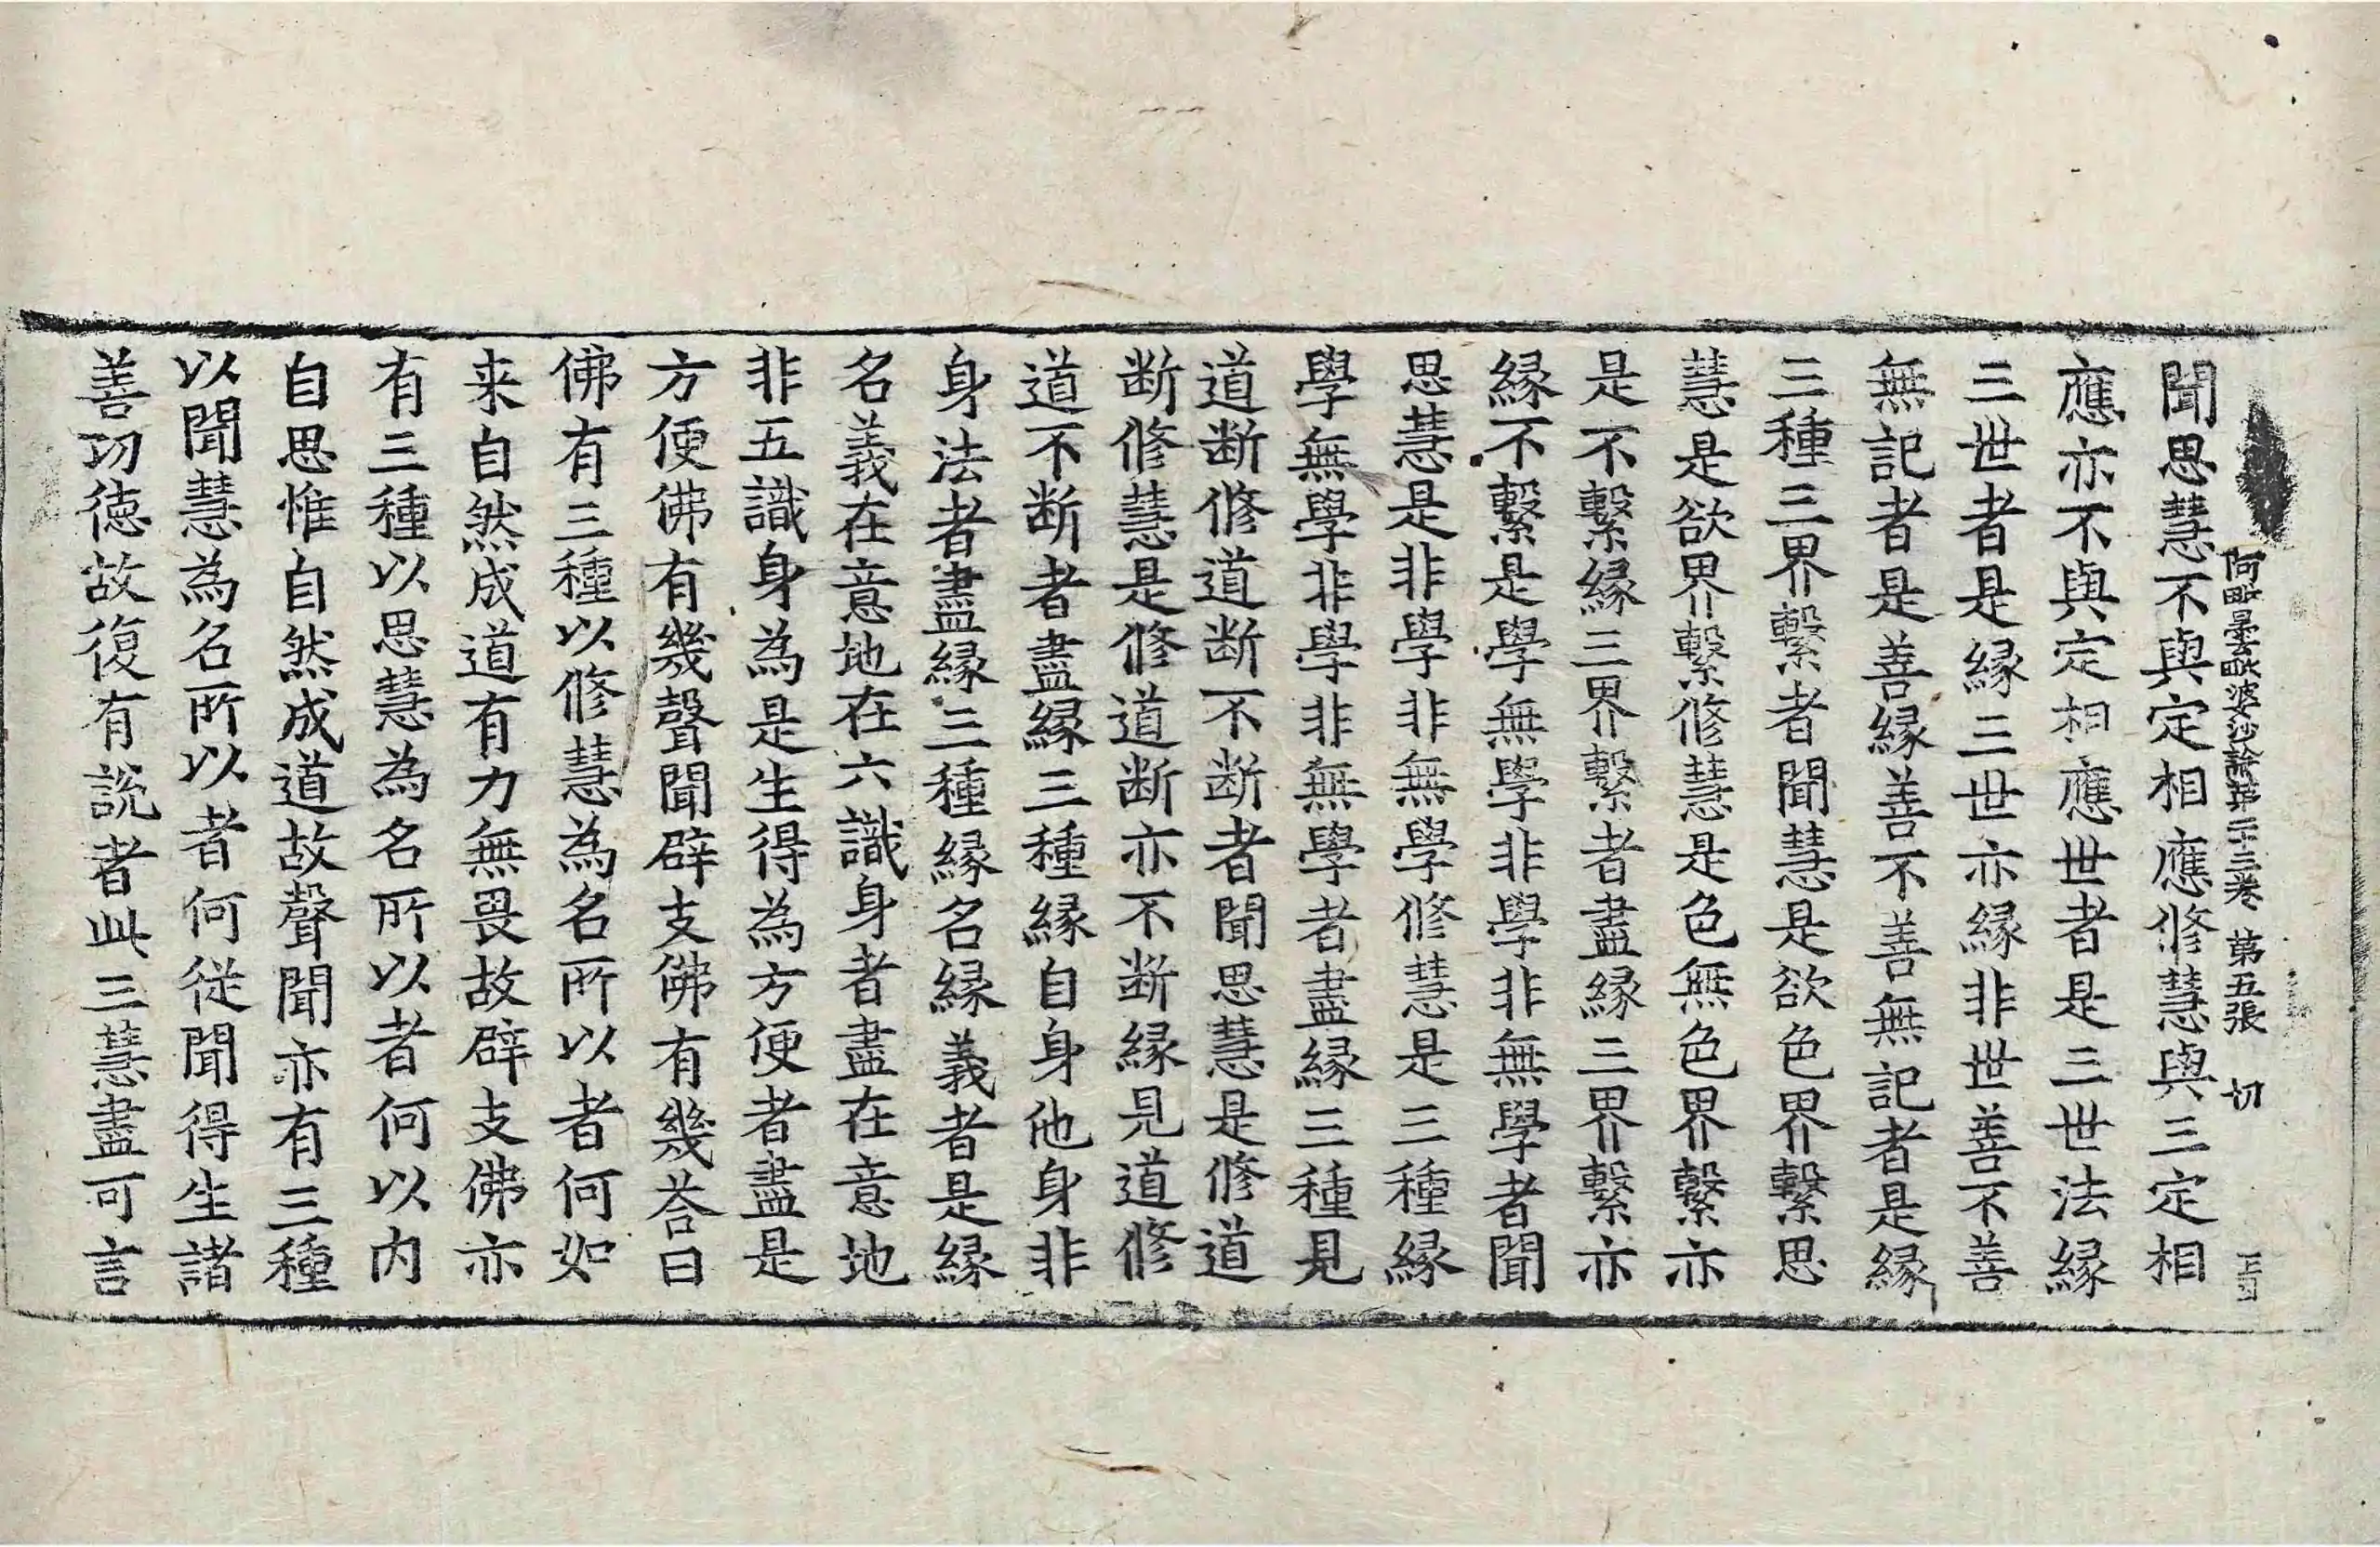 阿毗曇毗婆沙論第二十三卷 第五張 切
聞思慧不與定相應修慧與三定相
應亦不與定相應世者是三世法緣
三世者是緣三世亦緣非世善不善
無記者是善緣善不善無記者是緣
三種三界繫者聞慧是欲色界繫思
慧是欲界繫修慧是色無色界繫亦
是不繫緣三界繫者盡緣三界繫亦
緣不繫是學無學非學非無學者聞
思慧是非學非無學修慧是三種緣
學無學非學非無學者盡緣三種見
道断修道断不断者聞思慧是修道
断修慧是修道断亦不断緣見道修
道不断者盡緣三種緣自身他身非
身法者盡緣三種緣名緣義者是緣
名義在意地在六識身者盡在意地
非五識身為是生得為方便者盡是
方便佛有幾聲聞辟支佛有幾荅曰
佛有三種以修慧為名所以者何如
来自然成道有力無畏故辟支佛亦
有三種以思慧為名所以者何以内
自思惟自然成道故聲聞亦有三種
以聞慧為名所以者何從聞得生諸
善功德故復有說者此三慧盡可言